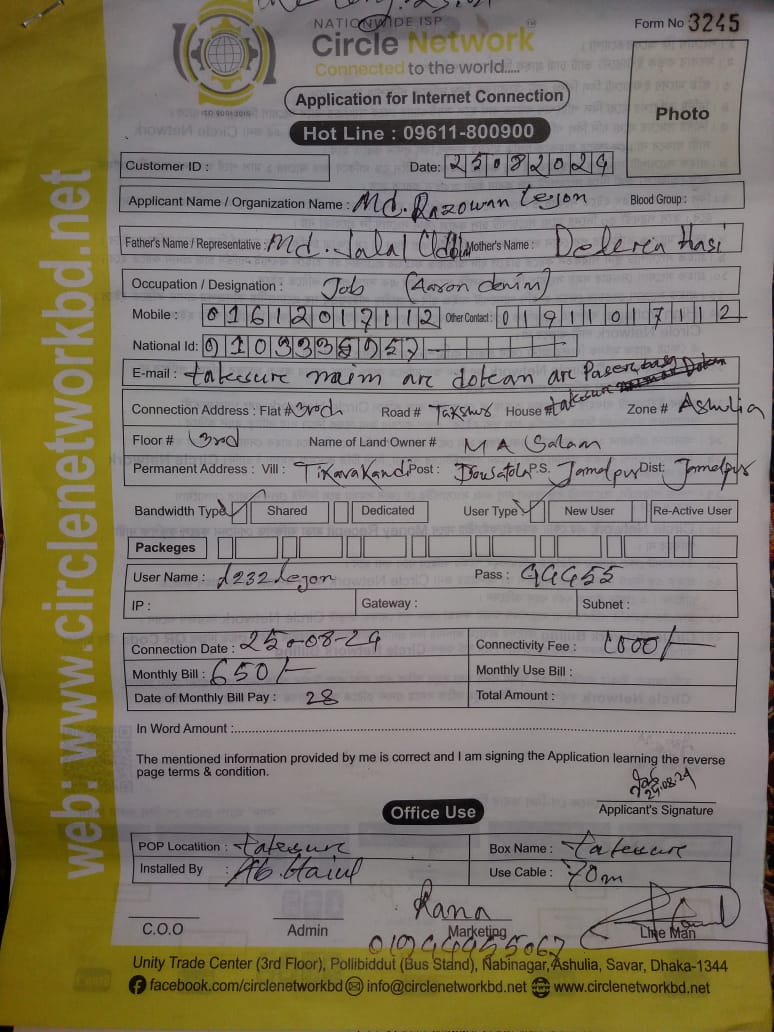 NATIONWIDE ISP
Form No 3245
Circle Network
Connected to the world.....
ISO 9001:2015
Application for Internet Connection
Photo
Hot Line : 09611-800900
Customer ID :
Date: 25082024
Applicant Name / Organization Name : Md. Razowan Lejon Blood Group :
Father's Name / Representative : Md. Jalal Uddin Mother's Name : Hasi
Occupation / Designation : Job (Aaron denim)
Mobile : 01612017112 Other Contact : 01911017112
National Id:
E-mail :
Connection Address : Flat # Road # House # Zone # Ashulia
Floor # 3rd Name of Land Owner # M A Salam
Permanent Address : Vill : Tikarakandi Post : P.S. Jamalpur Dist: Jamalpur
Bandwidth Type Shared Dedicated User Type New User Re-Active User
Packeges
User Name : d232lejon Pass : 44455
IP : Gateway : Subnet :
Connection Date : 25-08-24 Connectivity Fee : 1000/-
Monthly Bill : 650/- Monthly Use Bill :
Date of Monthly Bill Pay : 28 Total Amount :
In Word Amount :
The mentioned information provided by me is correct and I am signing the Application learning the reverse
page terms & condition.
25.08.24
Applicant's Signature
Office Use
POP Locatition : Box Name :
Installed By : Use Cable : 70m
Rana
C.O.O Admin Marketing Line Man
Unity Trade Center (3rd Floor), Pollibiddut (Bus Stand), Nabinagar, Ashulia, Savar, Dhaka-1344
facebook.com/circlenetworkbd info@circlenetworkbd.net www.circlenetworkbd.net
web: www.circlenetworkbd.net